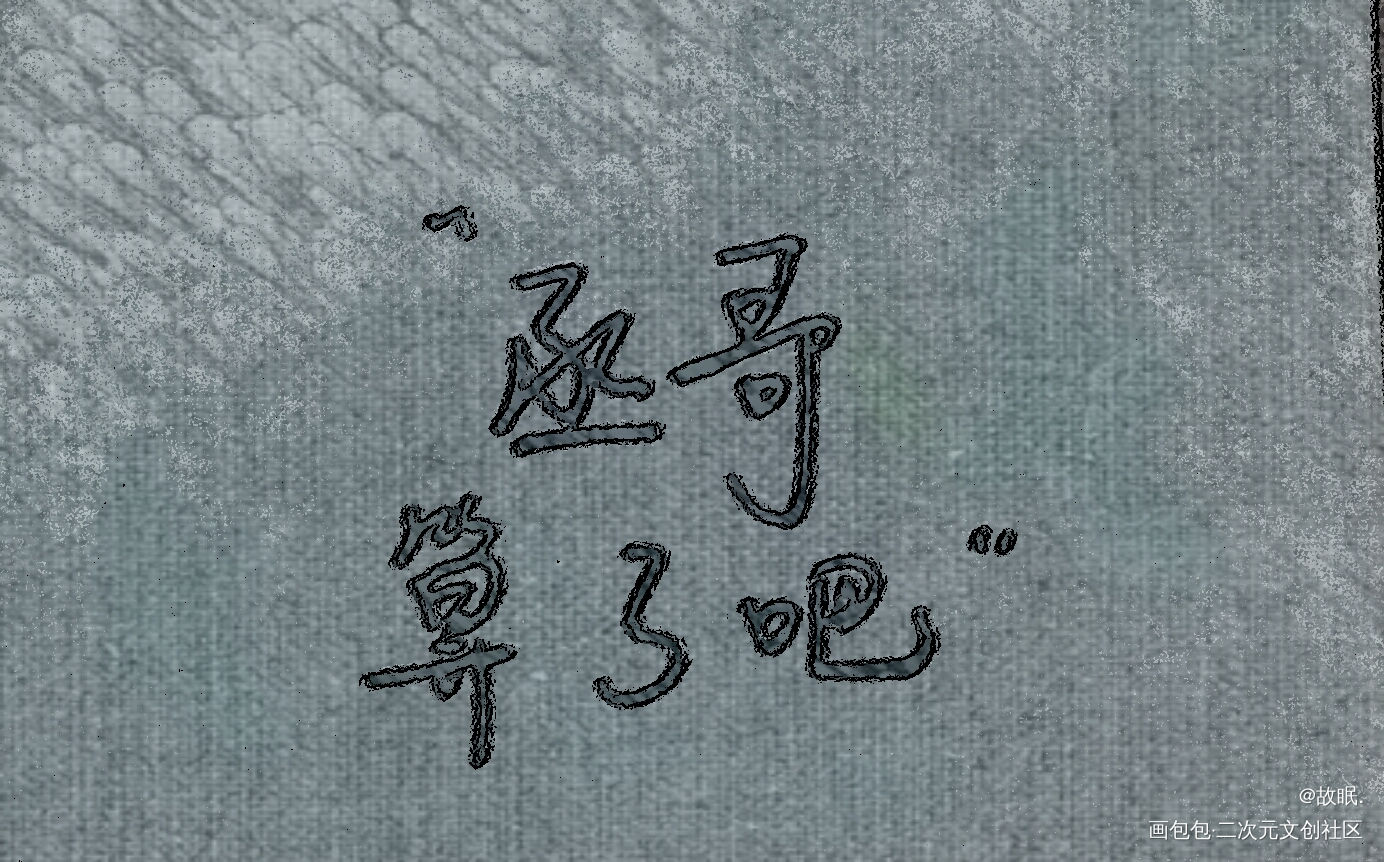 “丞哥
算了吧”
@故眠.
画包包·二次元文创社区